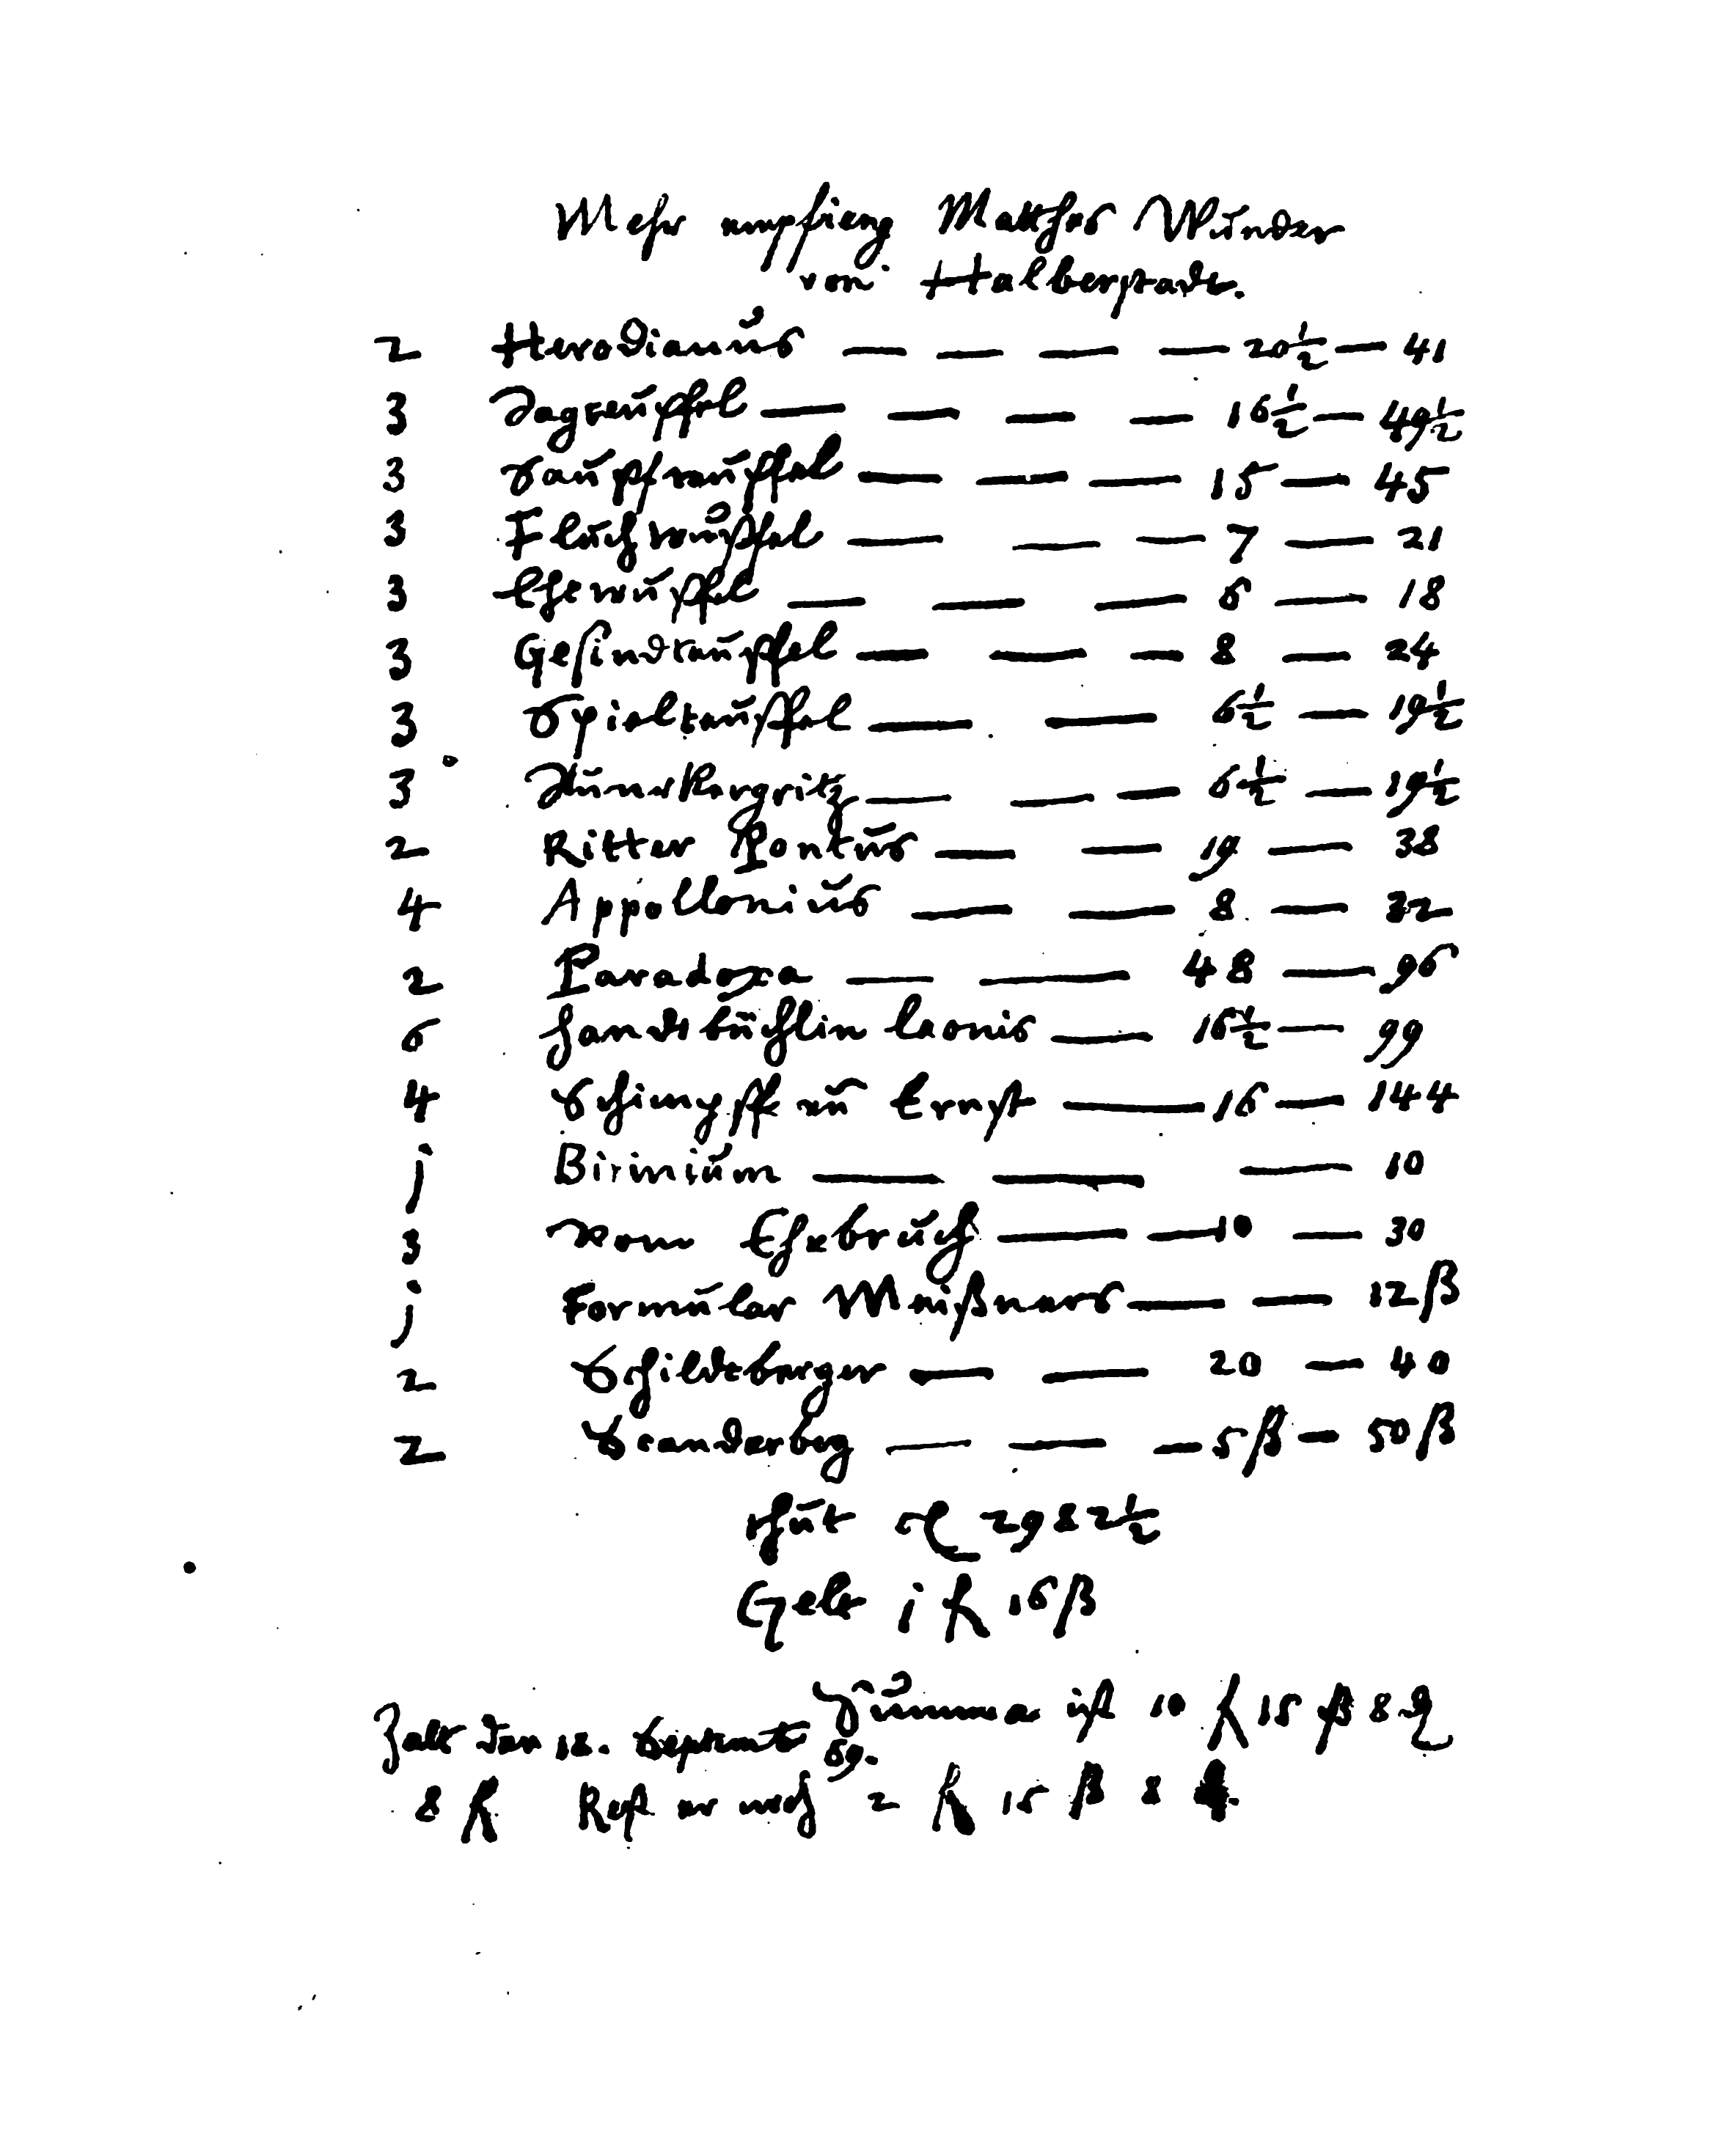 Mehr empfieng Matthes Wunder
von Halberstadt.
2 Herodianus — — — — 20½ — 41
3 Jagteuffel — — — — 16½ — 49½
3 Sauffteuffel — — — 15 — 45
3 Fluchteuffel — — — 7 — 21
3 Eheteuffel — — — 6 — 18
3 Gesindteuffel — — — 8 — 24
3 Spielteuffel — — 6½ — 19½
3 — — — 6½ — 19½
2 Ritter Pontus — — 19 — 38
4 Appollonius — — 8 — 32
2 Paradoxa — — 48 — 96
6 Handtbüchlin Leonis — 16½ — 99
4 Schimpff vnd Ernst — 16 — 144
j — — — 10
3 vom Ehebruch — — 10 — 30
j Formular Meißners — — 12 ß
2 Schildtberger — — 20 — 40
2 Scanderbeg — — — 5 ß — 50 ß
thut 2982½
Gelt i fl 16 ß
Summa ist 10 fl 15 ß 8 ₰
Zalt den 12. Septemb 69.
8 fl Rest er noch 2 fl 15 ß 8